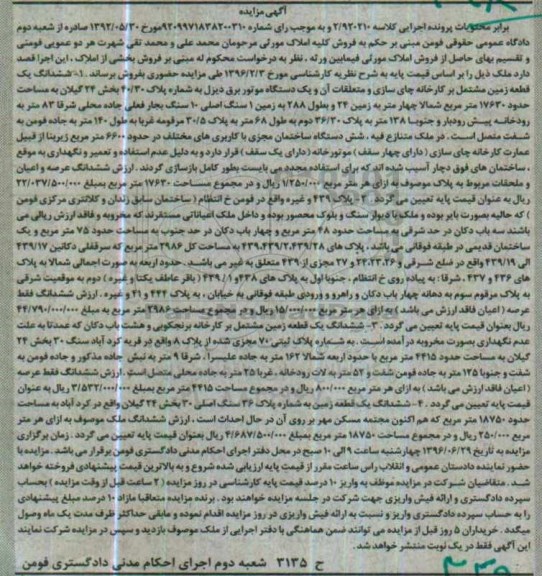 آگهی مزایده
برابر محتویات پرونده اجرایی کلاسه ۲/۹۲۰۲۱۰ و به موجب رای شماره ۹۲۰۹۹۷۱۸۳۸۲۰۰۳۱۰ مورخ ۱۳۹۲/۰۵/۳۰ صادره از شعبه دوم
دادگاه عمومی حقوقی فومن مبنی بر حکم به فروش کلیه املاک مورثی مرحومان محمد علی و محمد تقی شهرت هر دو عموبی فومنی
و تقسیم بهای حاصل از فروش املاک مورثی فیمابین ورثه ، نظر به درخواست محکوم له مبنی بر فروش بخشی از املاک ، این اجرا قصد
دارد ملک ذیل را بر اساس قیمت پایه به شرح نظریه کارشناسی مورخ ۱۳۹۶/۲/۳ طی مزایده حضوری بفروش برساند .۱-ششدانگ یک
قطعه زمین مشتمل بر کارخانه چای سازی و متعلقات آن و یک دستگاه موتور برق دیزل به شماره پلاک ۴۰/۳۰ بخش ۲۴ گیلان به مساحت
حدود ۱۷۶۳۰ متر مربع شمالا چهار متر به زمین ۲۴ و بطول ۲۸۸ به زمین ۱ سنگ اصلی ۱۰ سنگ بجار فعلی جاده محلی شرقا ۸۳ متر به
رودخانه پیش رودبار و جنوبا ۱۳۸ متر به پلاک ۳۶/۳۰ دوم به طول ۶۸ متر به پلاک ۳۰/۵ مرقومه غربا به طول ۱۴۰ متر به جاده فومن به
شفت متصل است . در ملک متنازع فیه ، شش دستگاه ساختمان مجزی با کاربری های مختلف در حدود ۶۶۰۰ متر مربع زیربنا از قبیل
عمارت کارخانه چای سازی ( دارای چهار سقف ) موتورخانه ( دارای یک سقف ) قرار دارد و به دلیل عدم استفاده و تعمیر و نگهداری به موقع
، ساختمان های فوق دچار آسیب شده اند که برای استفاده مجدد می بایست بطور کامل بازسازی گردند . ارزش ششدانگ عرصه و اعیان
و ملحقات مربوط به پلاک موصوف به ازای هر متر مربع ۱/۲۵۰/۰۰۰ ریال و در مجموع مساحت ۱۷۶۳۰ متر مربع بمبلغ ۲۲/۰۳۷/۵۰۰/۰۰۰
ریال به عنوان قیمت پایه تعیین می گردد . ۲- پلاک ۴۳۹ و غیره واقع در فومن خ انتظام ( ساختمان سابق زندان و کلانتری مرکزی فومن
) که حالیه بصورت بایر بوده و ملک با دیوار سنگ و بلوک محصور بوده و داخل ملک اعیاناتی مستقرند که مخروبه و فاقد ارزش ریالی می
باشند سه باب دکان در حد شرقی به مساحت حدود ۴۸ متر مربع و چهار باب دکان در حد جنوب به مساحت حدود ۷۵ متر مربع و یک
ساختمان قدیمی در طبقه فوقانی می باشد . پلاک های ۴۳۹،۴۳۹/۲،۴۳۹/۲۸ به مساحت کل ۲۹۸۶ متر مربع که سرقفلی دکانین ۴۳۹/۱۷
الی ۴۳۹/۱۹ واقع در ضلع شرقی و ۲۴،۲۳،۲۶ و ۲۷ مجزی از ۴۳۹ متعلق به غیر می باشد . حدود اربعه به صورت اجمالی شمالا به پلاک
های ۴۳۶ و ۴۳۷ . شرقا: به پیاده روی خ انتظام ، جنوبا اول به پلاک های ۴۳۸ و ۴۳۹/۱ (باقر عاطف یکتا و غیره ) دوم به موقعیت شرقی
به پلاک مرقوم سوم به دهانه چهار باب دکان و راهرو و ورودی طبقه فوقانی به خیابان ، به پلاک ۴۲۴ و ۴۱ و غیره . ارزش ششدانگ فقط
عرصه ( اعیان فاقد ارزش می باشد ) به ازای هر متر مربع ۱۵/۰۰۰/۰۰۰ ریال و در مجموع مساحت ۲۹۸۶ متر مربع به مبلغ ۴۴/۷۹۰/۰۰۰/۰۰۰
ریال بعنوان قیمت پایه تعیین می گردد .۳- ششدانگ یک قطعه زمین مشتمل بر کارخانه برنجکوبی و هشت باب دکان که عمدتا به علت
عدم نگهداری بصورت مخروبه در آمده است . به شماره پلاک ثبتی ۷۰ مجزی شده از پلاک ۸ واقع در قریه کرد آباد سنگ ۳۰ بخش ۲۴
گیلان به مساحت حدود ۴۴۱۵ متر مربع با حدود اربعه شمالا ۱۶۲ متر به جاده علیسرا ، شرقا ۹ متر به نبش جاده مذکور و جاده فومن به
شفت و جنوبا ۱۲۵ متر به جاده فومن شفت و ۵۲ متر به لات رودخانه ، غربا ۲۵ متر به جاده محلی متصل است . ارزش ششدانگ فقط عرصه
(اعیان فاقد ارزش می باشد ) به ازای هر متر مربع ۸۰۰/۰۰۰ ریال و در مجموع مساحت ۴۴۱۵ متر مربع بمبلغ ۳/۵۳۲/۰۰۰/۰۰۰ ریال به عنوان
قیمت پایه تعیین می گردد . ۴-ششدانگ یک قطعه زمین به شماره پلاک ۳۶ سنگ اصلی ۳۰ بخش ۲۴ گیلان واقع در کرد آباد به مساحت
حدود ۱۸۷۵۰ متر مربع که هم اکنون مجتمع مسکن مهر بر روی آن در حال احداث است ، ارزش ششدانگ ملک موصوف به ازای هر متر
مربع ۲۵۰/۰۰۰ ریال و در مجموع مساحت ۱۸۷۵۰ متر مربع بمبلغ ۴/۶۸۷/۵۰۰/۰۰۰ ریال بعنوان قیمت پایه تعیین می گردد . زمان برگزاری
مزایده به تاریخ ۱۳۹۶/۰۶/۲۹ چهارشنبه ساعت ۹ الی ۱۰ صبح در محل دفتر اجرای احکام مدنی دادگستری فومن برقرار می باشد . مزایده با
حضور نماینده دادستان عمومی و انقلاب راس ساعت مقرر از قیمت پایه ارزیابی شده شروع و به بالاترین قیمت پیشنهادی فروخته خواهد
شد . متقاضیان شرکت در مزایده موظف به واریز ۱۰ درصد قیمت پایه کارشناسی در روز مزایده ( ۲ ساعت قبل از وقت مزایده ) بحساب
سپرده دادگستری و ارائه فیش واریزی جهت شرکت در جلسه مزایده خواهند بود . برنده مزایده متعاقبا مازاد ۱۰ درصد مبلغ پیشنهادی
را به حساب سپرده دادگستری واریز و نسبت به ارائه فیش واریزی در روز مزایده اقدام نموده و مابقی حداکثر ظرف مدت یک ماه وصول
میگردد . خریداران ۵ روز قبل از مزایده می توانند ضمن هماهنگی با دفتر اجرایی از ملک موصوف بازدید و سپس در مزایده شرکت نمایند
این آگهی فقط در یک نوبت منتشر خواهد شد .
ح ۳۱۳۵ شعبه دوم اجرای احکام مدنی دادگستری فومن